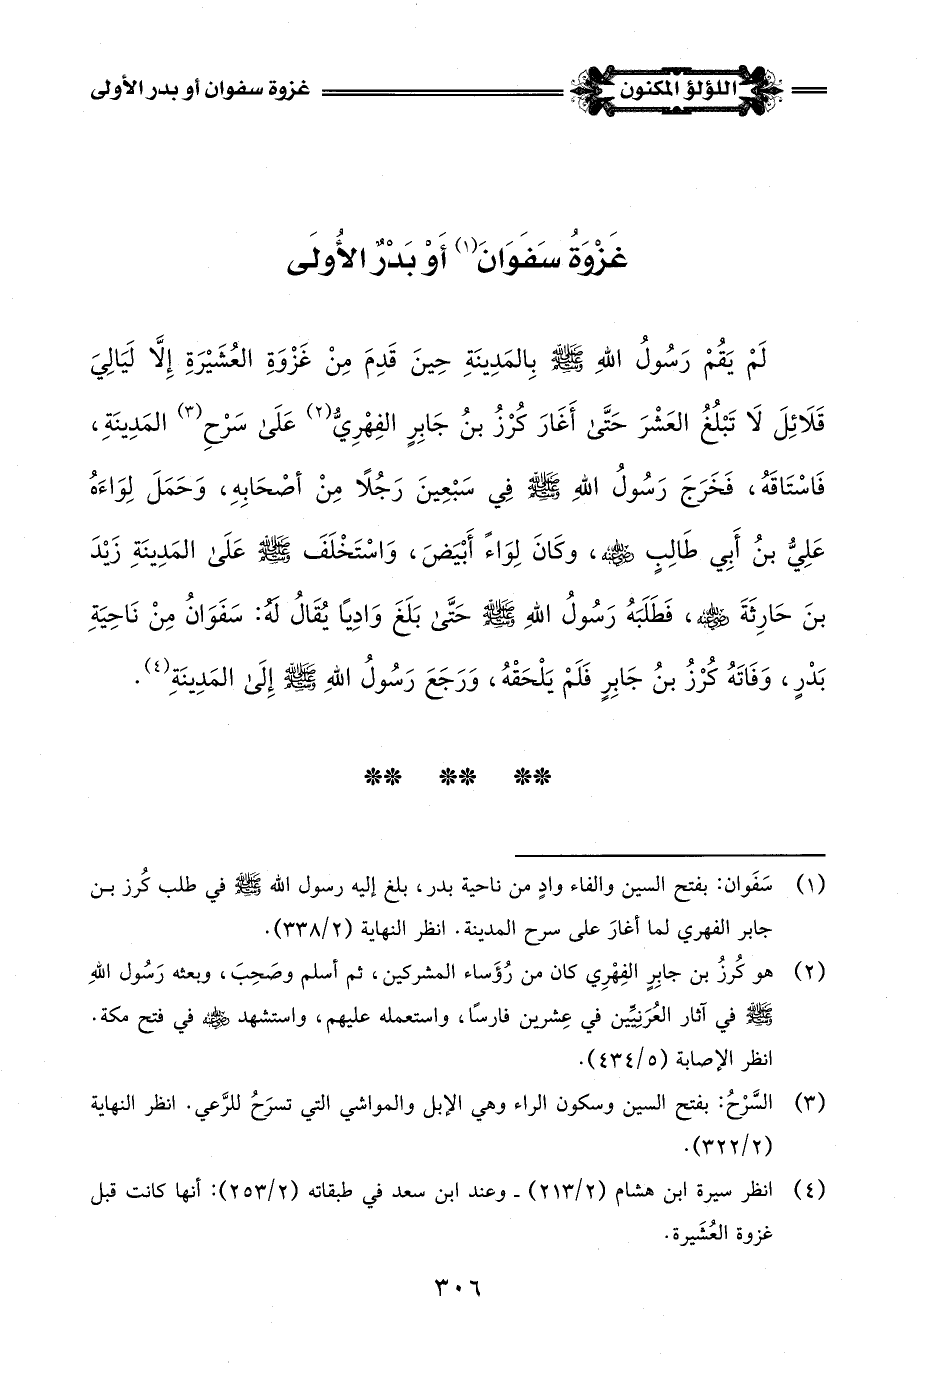 اللؤلؤ المكنون
غزوة سفوان أو بدر الأولى
غَزْوَةُ سَفَوَانَ(١) أَوْ بَدْرٌ الأُولَى
لَمْ يَقُمْ رَسُولُ اللهِ ﷺ بِالمَدِينَةِ حِينَ قَدِمَ مِنْ غَزْوَةِ العُشَيْرَةِ إِلَّا لَيَالِيَ
قَلَائِلَ لَا تَبْلُغُ العَشْرَ حَتَّىٰ أَغَارَ كُرْزُ بنُ جَابِرٍ الفِهْرِيُّ(٢) عَلَىٰ سَرْحِ(٣) المَدِينَةِ،
فَاسْتَاقَهُ، فَخَرَجَ رَسُولُ اللهِ ﷺ فِي سَبْعِينَ رَجُلًا مِنْ أصْحَابِهِ، وَحَمَلَ لِوَاءَهُ
عَلِيُّ بنُ أَبِي طَالِبٍ رضي الله عنه، وكَانَ لِوَاءً أَبْيَضَ، وَاسْتَخْلَفَ ﷺ عَلَىٰ المَدِينَةِ زَيْدَ
بنَ حَارِثَةَ رضي الله عنه، فَطَلَبَهُ رَسُولُ اللهِ ﷺ حَتَّىٰ بَلَغَ وَادِيًا يُقَالُ لَهُ: سَفَوَانُ مِنْ نَاحِيَةِ
بَدْرٍ، وَفَاتَهُ كُرْزُ بنُ جَابِرٍ فَلَمْ يَلْحَقْهُ، وَرَجَعَ رَسُولُ اللهِ ﷺ إِلَىٰ المَدِينَةِ(٤).
** ** **
(١) سَفَوان: بفتح السين والفاء وادٍ من ناحية بدر، بلغ إليه رسول الله ﷺ في طلب كُرز بن
جابر الفهري لما أغارَ على سرح المدينة. انظر النهاية (٣٣٨/٢).
(٢) هو كُرزُ بن جابرٍ الفِهْرِي كان من رُؤَساء المشركين، ثم أسلم وصَحِبَ، وبعثه رَسُول اللهِ
ﷺ في آثار العُرَنِيِّين في عِشرين فارسًا، واستعمله عليهم، واستشهد رضي الله عنه في فتح مكة.
انظر الإصابة (٤٣٤/٥).
(٣) السَّرْحُ: بفتح السين وسكون الراء وهي الإبل والمواشي التي تسرَحُ للرَّعي. انظر النهاية
(٣٢٢/٢).
(٤) انظر سيرة ابن هشام (٢١٣/٢) ـ وعند ابن سعد في طبقاته (٢٥٣/٢): أنها كانت قبل
غزوة العُشَيرة.
٣٠٦